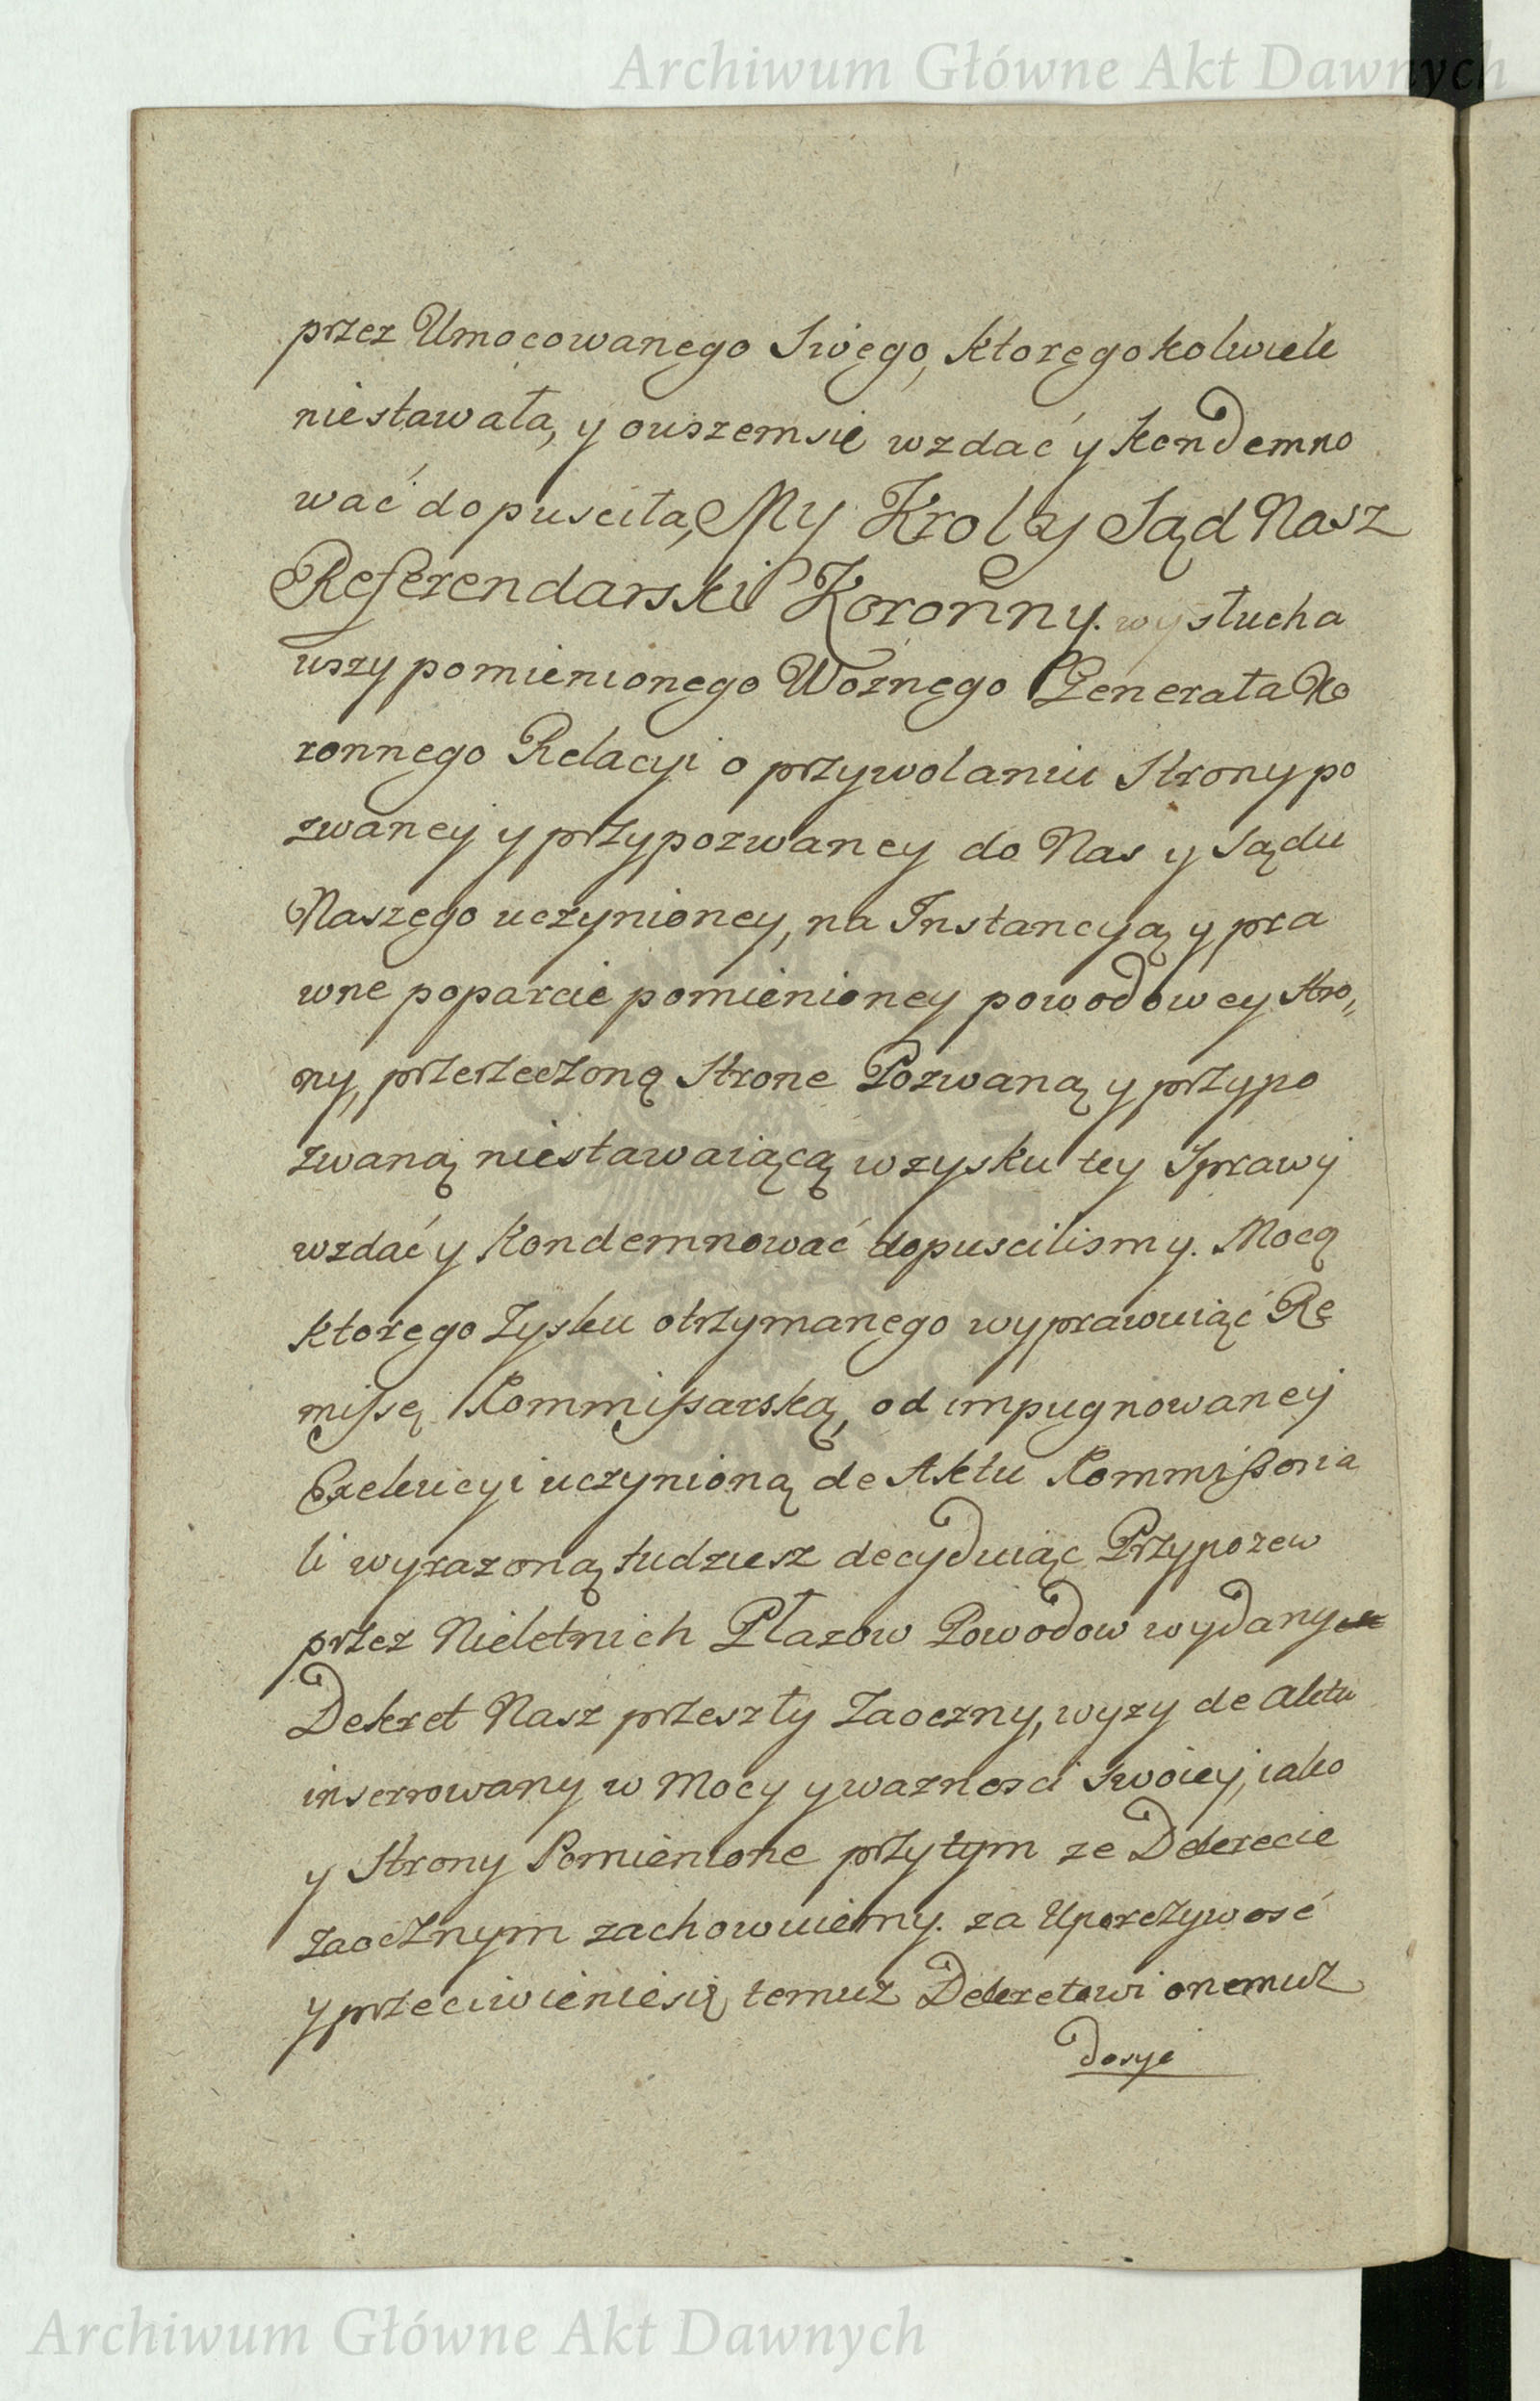 Archiwum Główne Akt Dawnych
przez Umocowanego Swego, ktoregokolwiek
niestawała, y owszem się wzdać y kondemno
wać dopusciła, My Krol y Sąd Nasz
Referendarski Koronny. wysłucha
wszy pomienionego Woznego Generała Ko
ronnego Relacyi o przywołaniu Strony po
zwaney y przypozwaney do Nas y Sądu
Naszego uczynioney, na Instancyą y pra
wne poparcie pomienioney powodowey Stro„
ny, przerzeczoną Strone Pozwaną y przypo
zwaną niestawaiącą w zysku tey Sprawy
wzdać y Kondemnować dopuscilismy. Mocą
ktorego Zysku otrzymanego wyprawuiąc Re
missę Kommissarską, od impugnowaney
Exekucyi uczynioną de Aktu Kommissoria
li wyrazoną tudziesz decyduiąc Przypozew
przez Nieletnich Płazow Powodow wydany
Dekret Nasz przeszły Zaoczny, wyzy de Aktu
inserrowany w Mocy y waznosci swoiey, iako
y Strony Pomienione przy tym ze Dekrecie
Zaocznym zachowuiemy. za Uporczywość
y przeciwienie się temuz Dekretowi onemuz
dosyć
Archiwum Główne Akt Dawnych